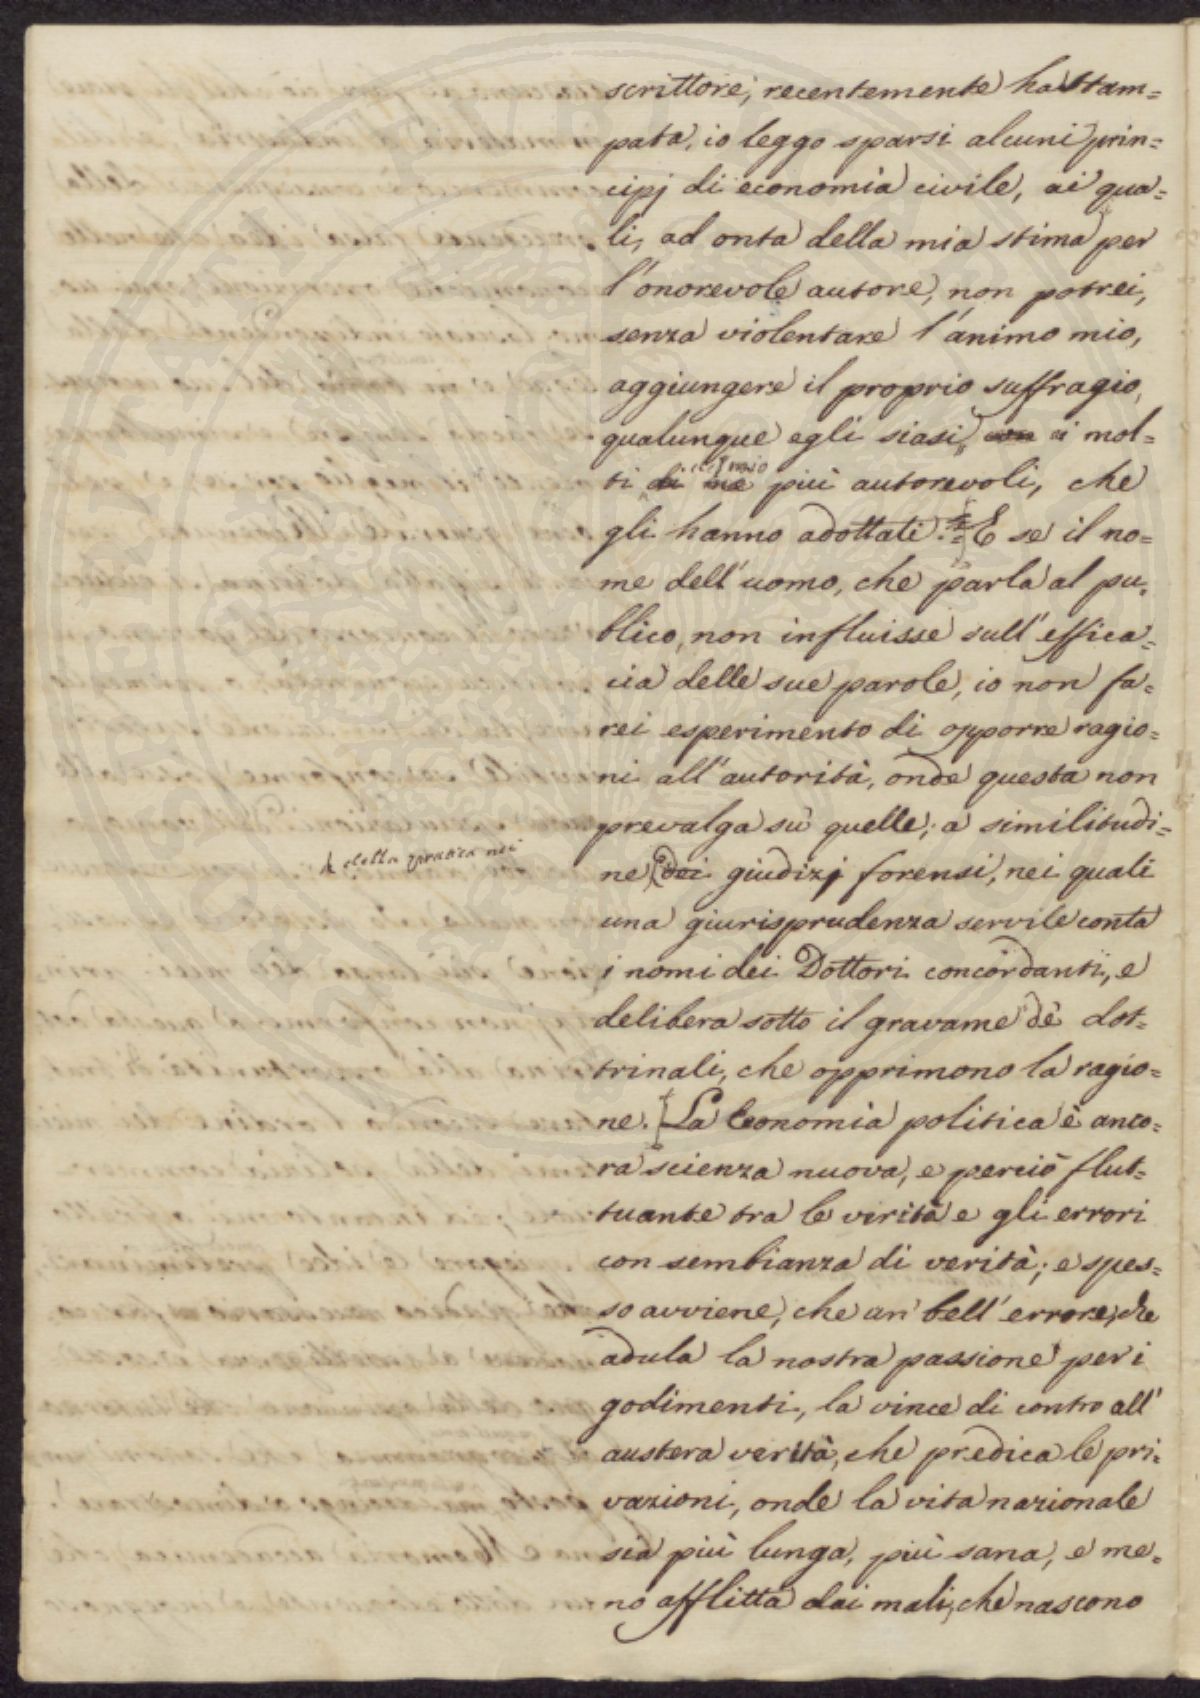 scrittore, recentemente ha stam=
pata, io leggo sparsi alcuni prin=
cipj di economia civile, ai qua=
li, ad onta della mia stima per
l'onorevole autore, non potrei,
senza violentare l'animo mio,
aggiungere il proprio suffragio,
qualunque egli siasi, ai mol=
del mio
ti di me più autorevoli, che
gli hanno adottati. = E se il no=
me dell'uomo, che parla al pu=
blico, non influisse sull'effica=
cia delle sue parole, io non fa=
rei esperimento di opporre ragio=
ni all'autorità, onde questa non
prevalga sù quelle; a similitudi=
della pratica nei
ne dei giudizj forensi, nei quali
una giurisprudenza servile conta
i nomi dei Dottori concordanti, e
delibera sotto il gravame dè dot=
trinali, che opprimono la ragio=
ne. [La Economia politica è anco=
ra scienza nuova, e perciò flut=
tuante tra le verità e gli errori
con sembianza di verità; e spes=
so avviene, che un' bell'errore, che
adula la nostra passione per i
godimenti, la vince di contro all'
austera verità, che predica le pri=
vazioni, onde la vita nazionale
sia più lunga, più sana, e me=
no afflitta dai mali, che nascono